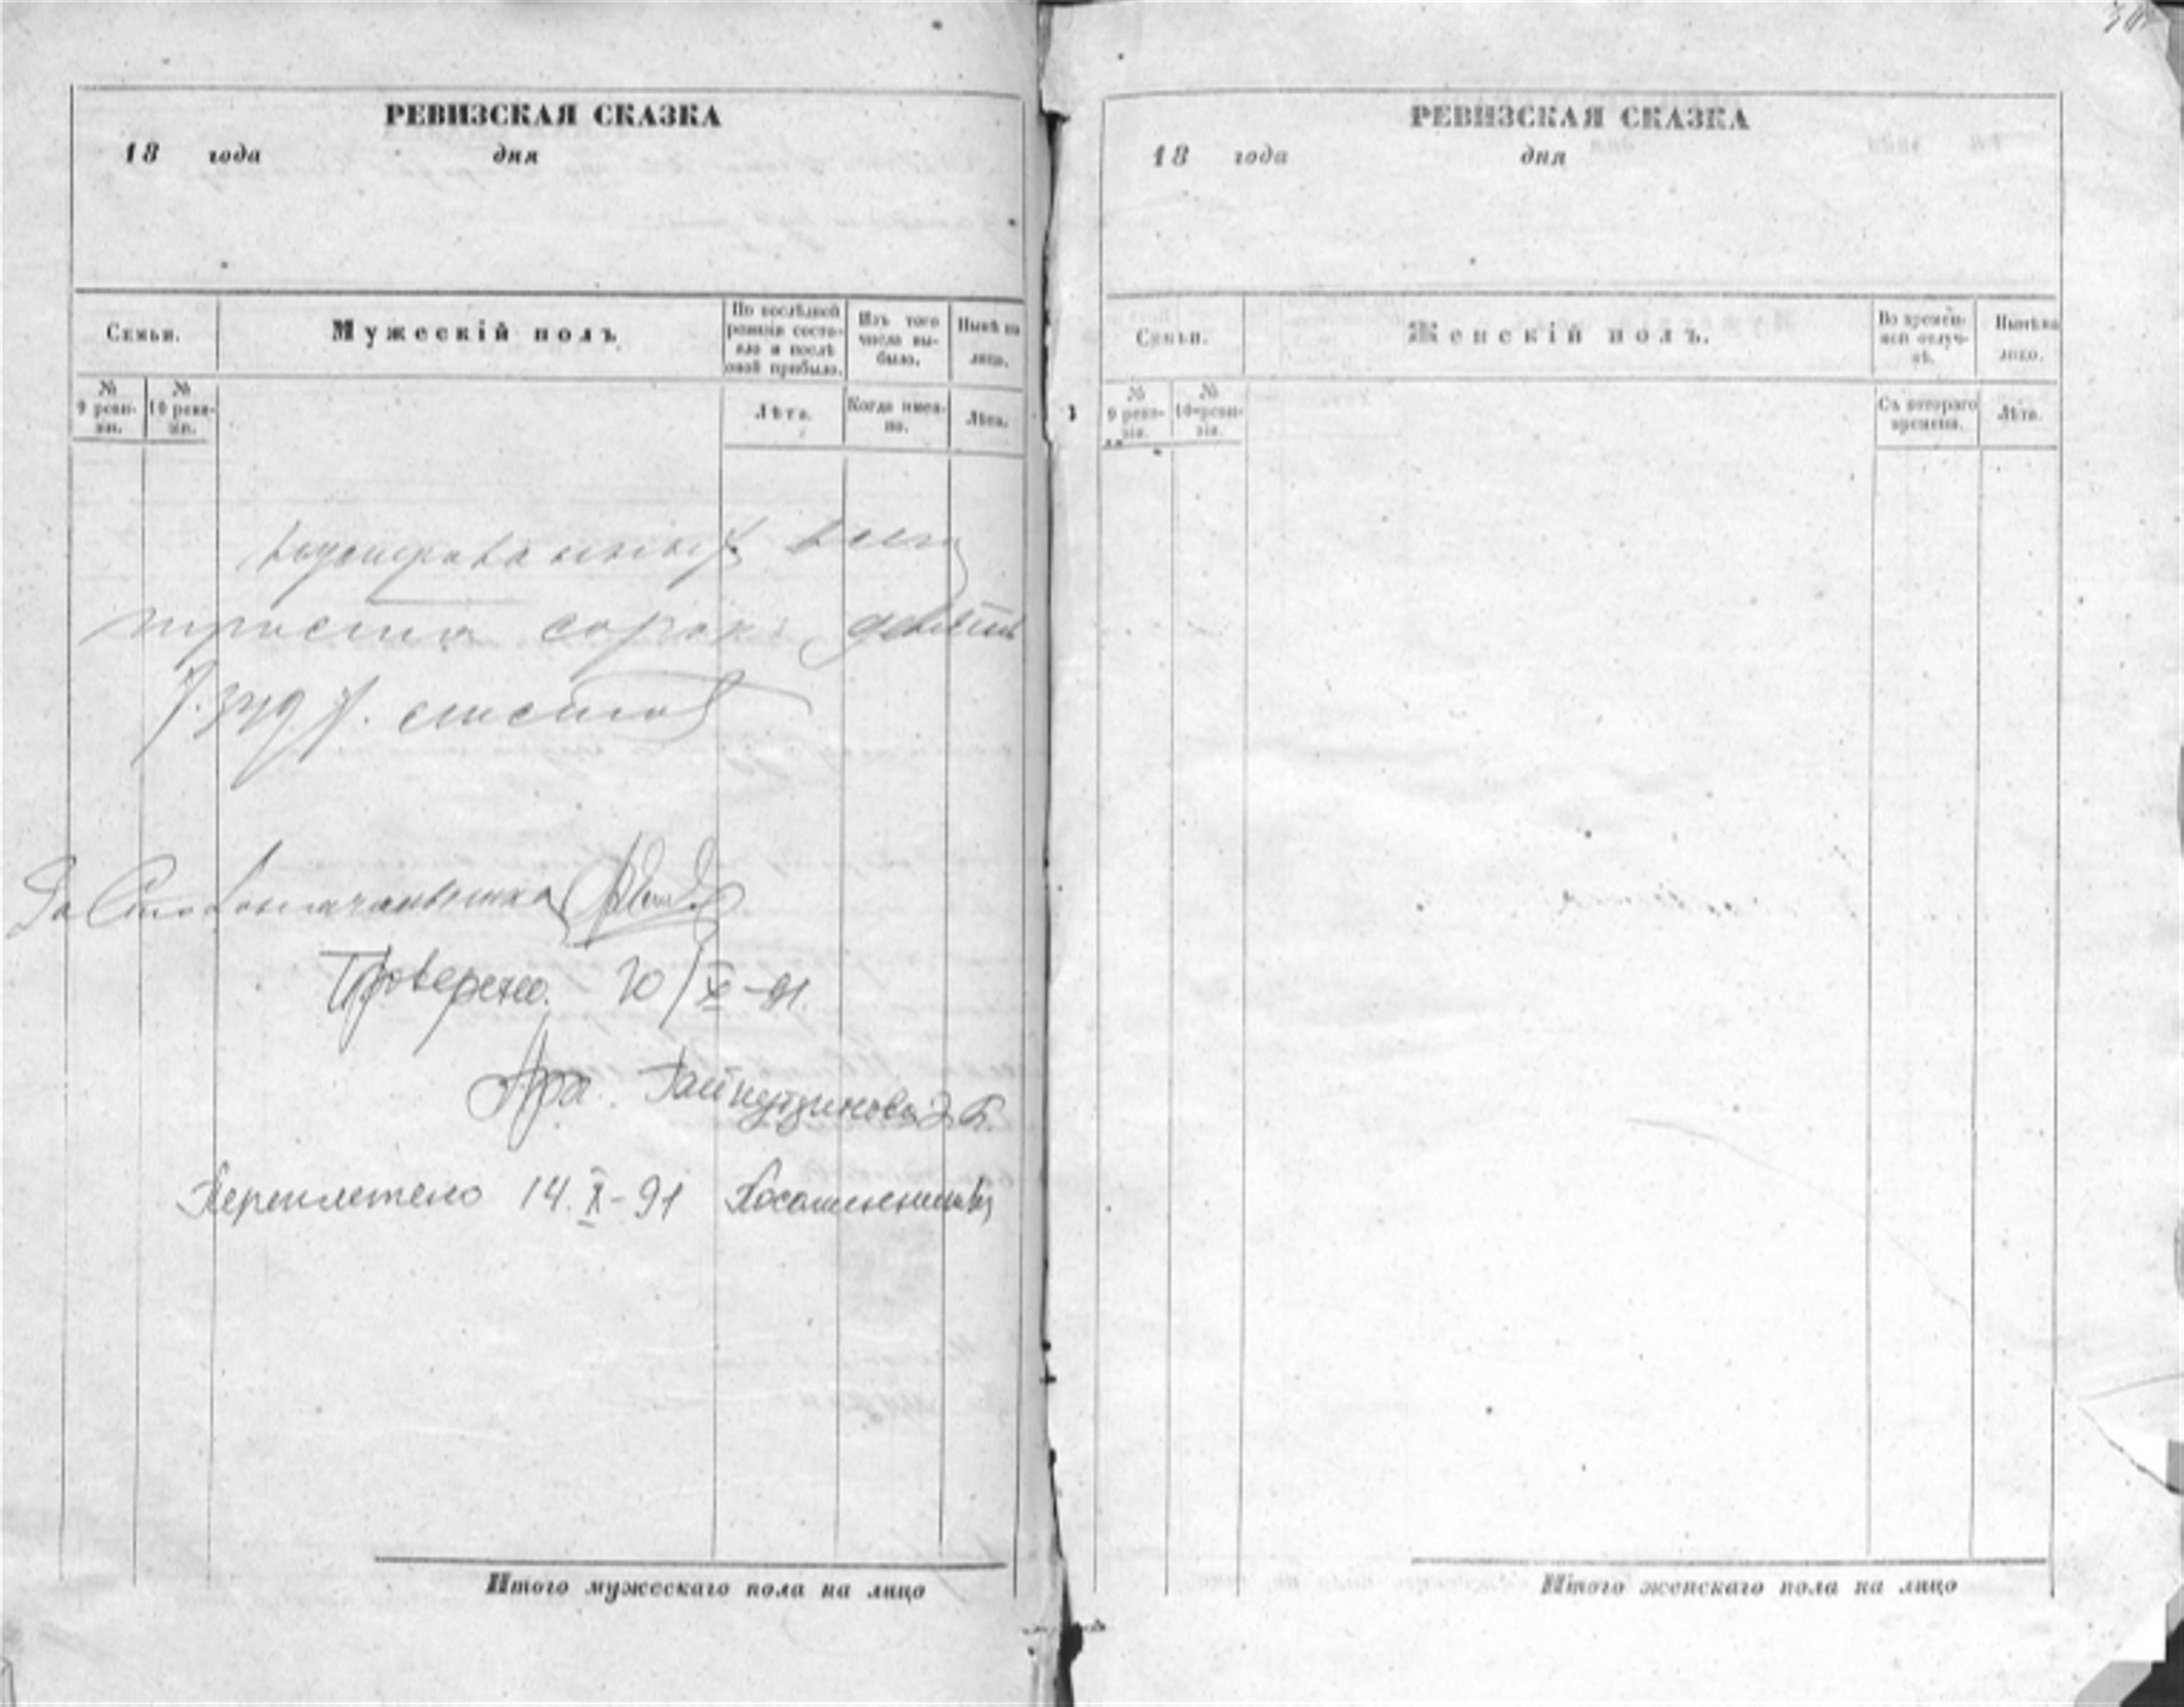 РЕВИЗСКАЯ СКАЗКА
18 года дня
Семьи.
Мужескій полъ
По послѣдней ревизіи состояло и послѣ оной прибыло.
Изъ того числа выбыло.
Нынѣ на лицо.
№ 9 ревизіи.
№ 10 ревизіи.
Лѣта.
Когда именно.
Лѣта.
нумерованных всего
триста сорок девять
/.349./. листов
За Столоначальника
Проверено. 20/X-91.
Арх.
Переплетено 14.X-91
Итого мужескаго пола на лицо
РЕВИЗСКАЯ СКАЗКА
18 года дня
Семьи.
Женскій полъ.
Во временной отлучкѣ.
Нынѣ на лицо.
№ 9 ревизіи.
№ 10 ревизіи.
Съ котораго времени.
Лѣта.
Итого женскаго пола на лицо